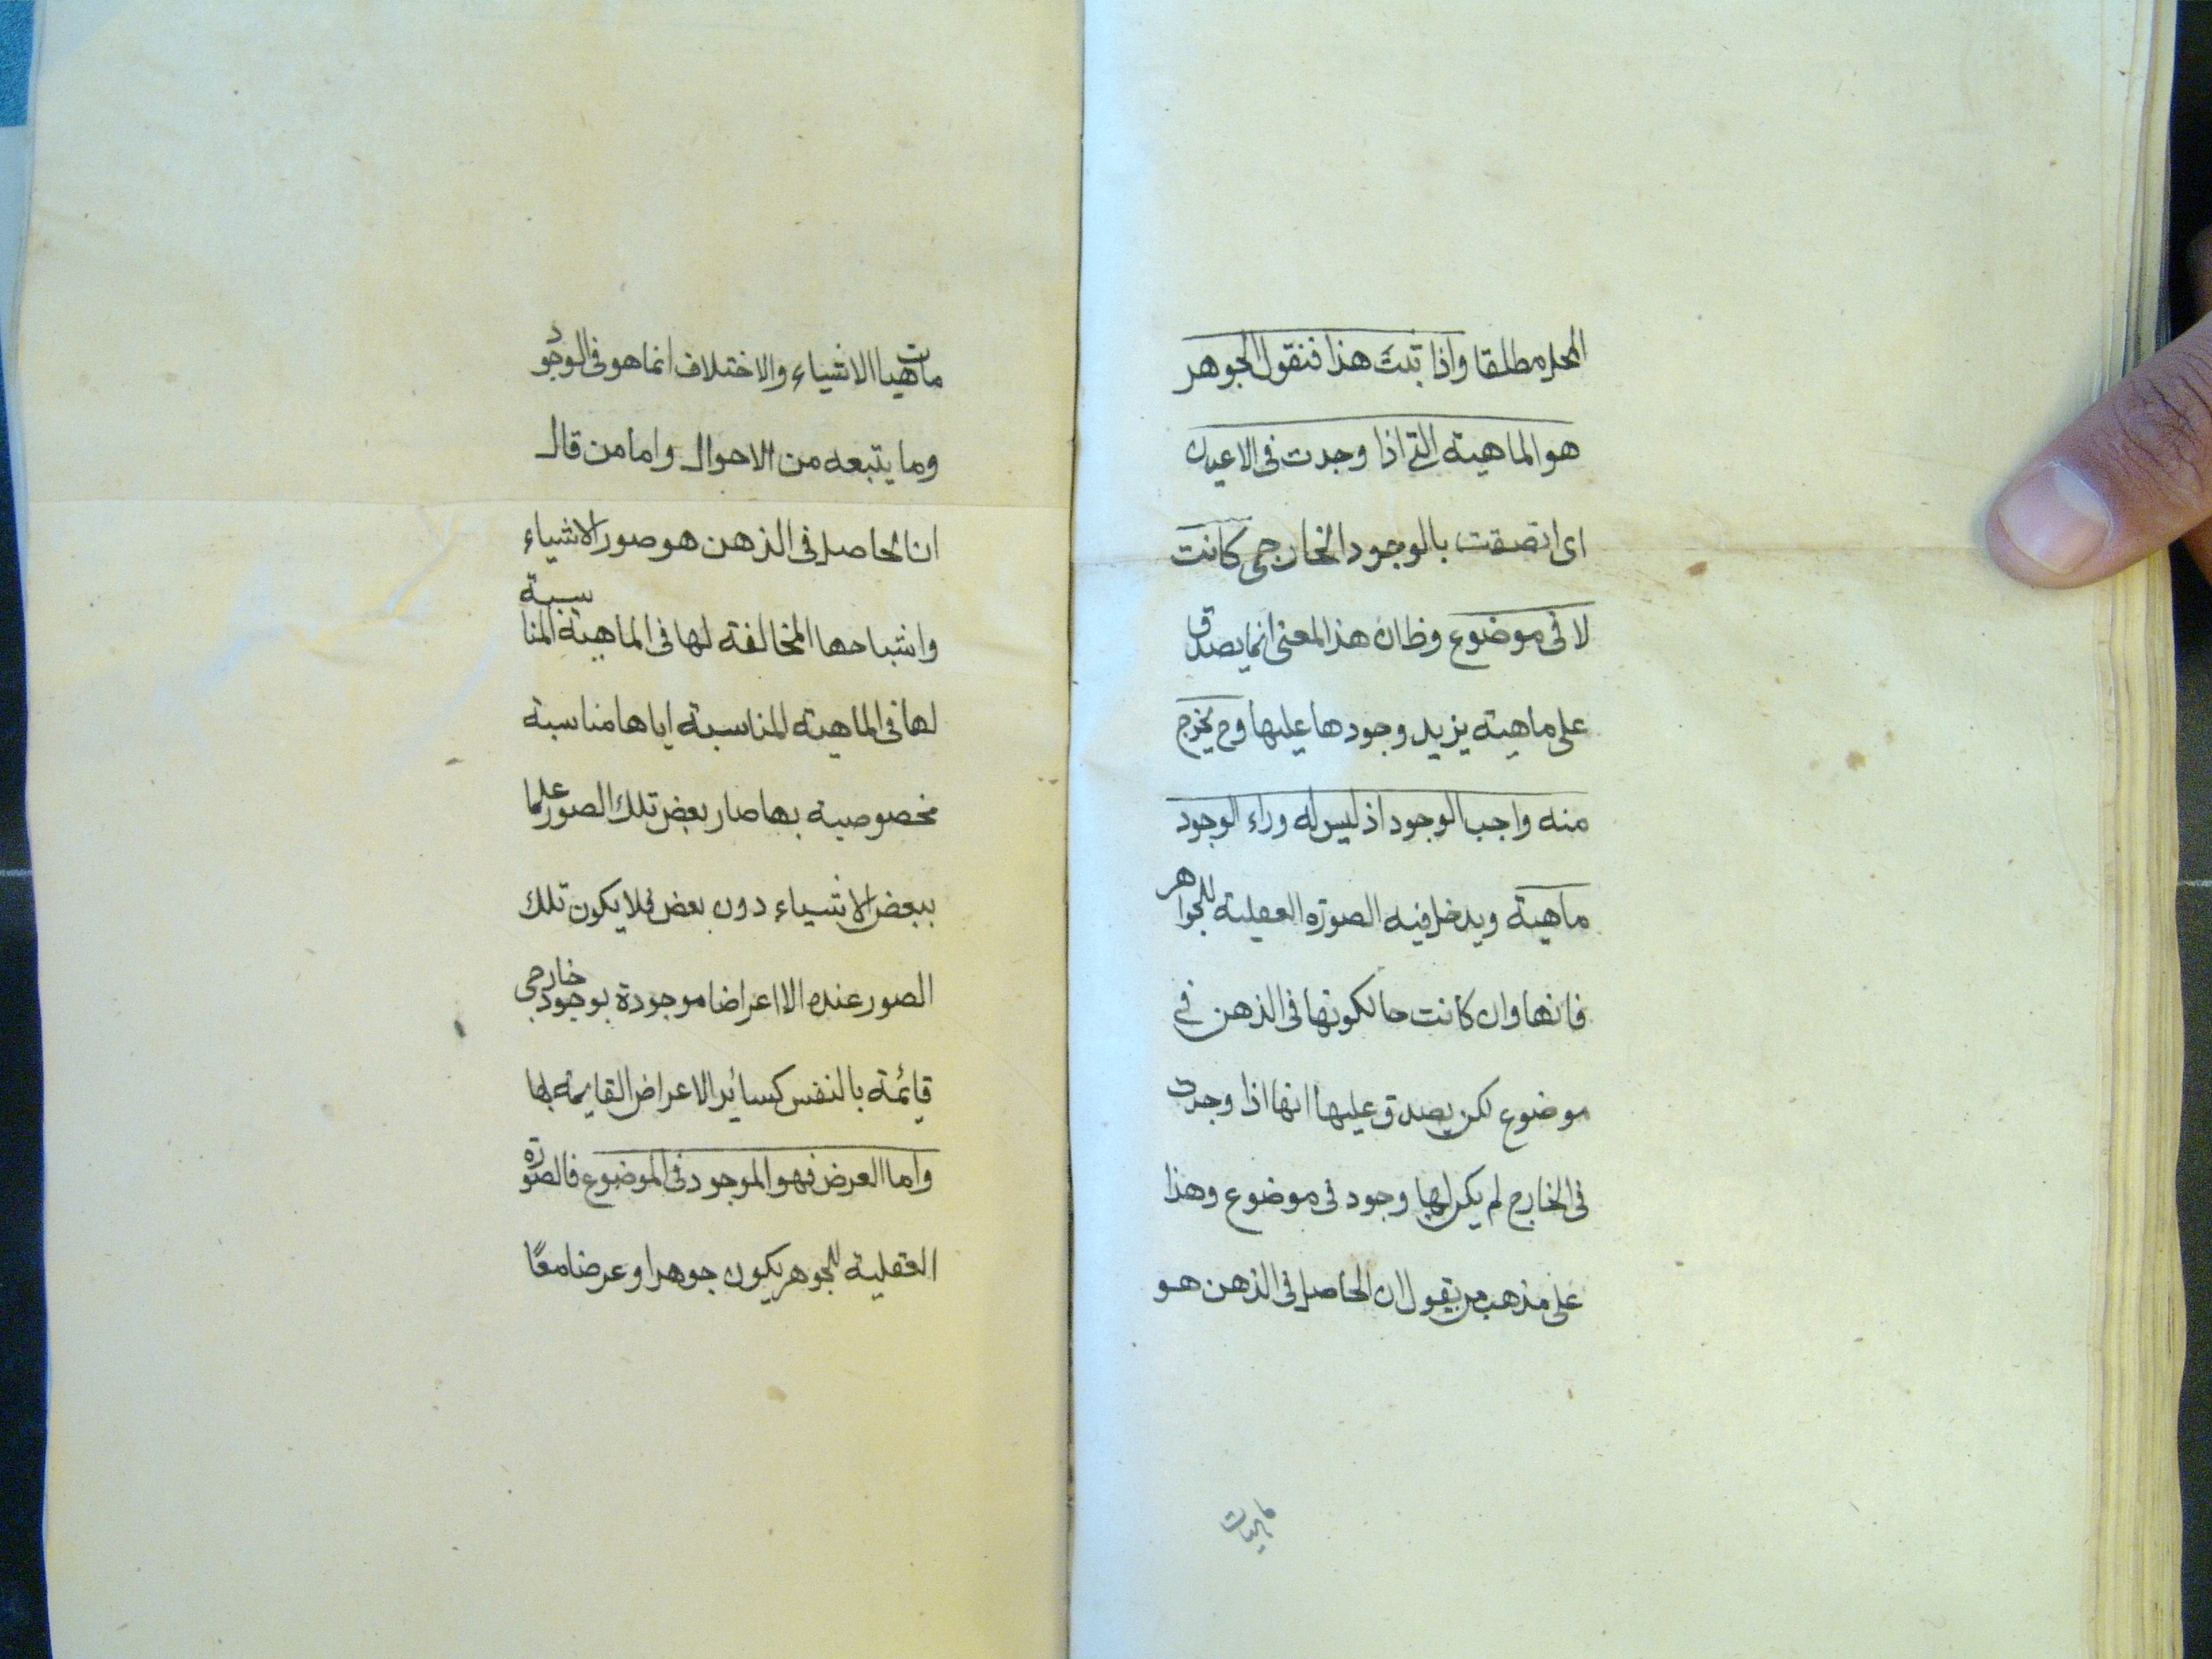 المحل مطلقا واذا ثبت هذا فنقول الجوهر
هو الماهية التي اذا وجدت في الاعيان
اى اتصفت بالوجود الخارجى كانت
لا فى موضوع وظ ان هذا المعنى انما يصدق
على ماهية يزيد وجودها عليها وح يخرج
منه واجب الوجود اذ ليس له وراء الوجود
ماهية ويدخل فيه الصورة العقلية للجواهر
فانها وان كانت حال كونها فى الذهن في
موضوع لكن يصدق عليها انها اذا وجدت
فى الخارج لم يكن لها وجود فى موضوع وهذا
على مذهب من يقول ان الحاصل فى الذهن هو
ماهيات
ماهيات الاشياء والاختلاف انما هو فى الوجود
وما يتبعه من الاحوال واما من قال
ان الحاصل فى الذهن هو صور الاشياء
واشباحها المخالفة لها فى الماهية المناسبة
لها فى الماهية المناسبة اياها مناسبة
مخصوصية بها صار بعض تلك الصور علما
ببعض الاشياء دون بعض فلا يكون تلك
الصور عنده الا اعراضا موجودة بوجود خارجى
قائمة بالنفس كسائر الاعراض القايمة بها
واما العرض فهو الموجود فى الموضوع فالصورة
العقلية للجوهر يكون جوهرا وعرضا معًا